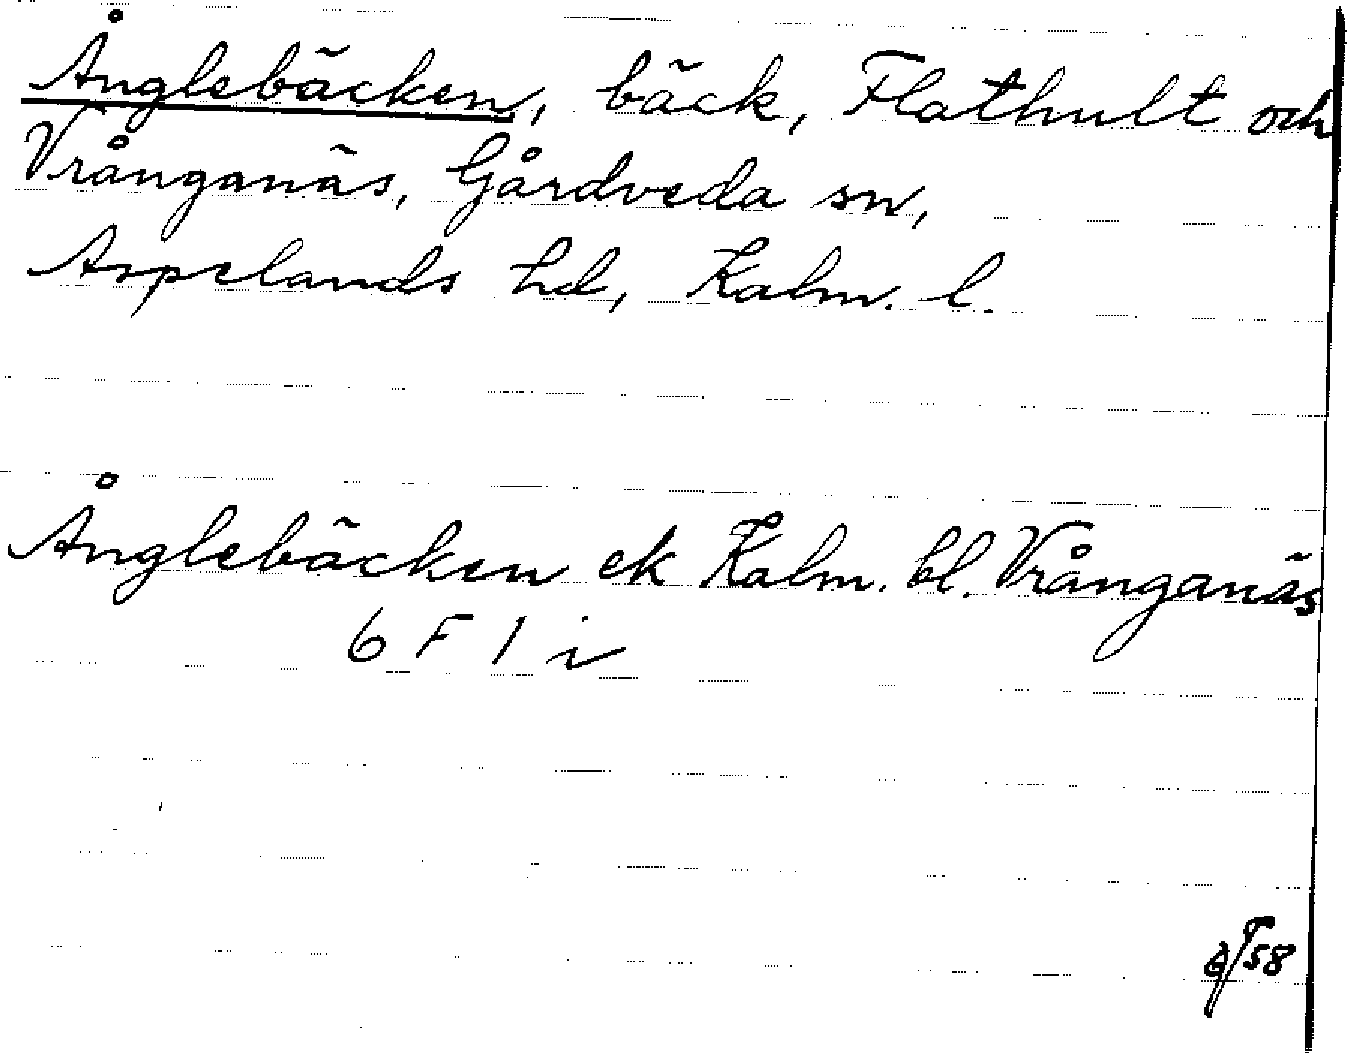 Ånglebäcken, bäck, Flathult och
Vrånganäs, Gårdveda sn,
Aspelands hd, Kalm. l.
Ånglebäcken ek Kalm. bl. Vrånganäs
6 F 1 i
58